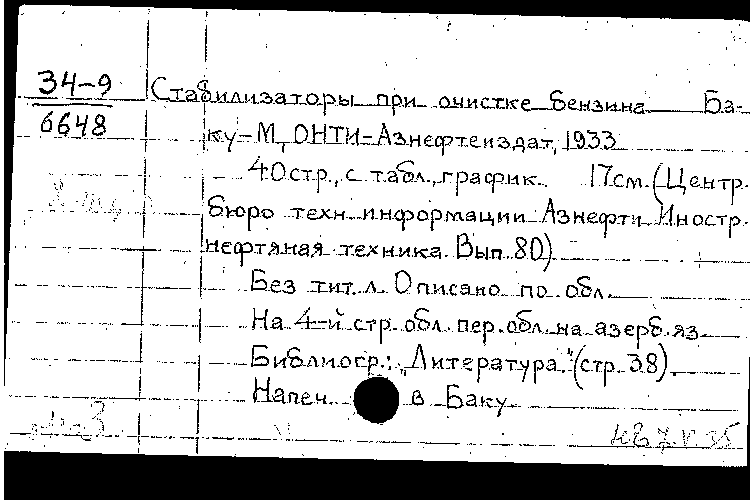 34-9
6648
Стабилизаторы при очистке бензина Ба-
ку-М, ОНТИ-Азнефтеиздат, 1933
40стр., с табл., график. 17см. (Центр.
бюро техн. информации Азнефти. Иностр.
нефтяная техника. Вып. 80).
Без тит. л. Описано по обл.
На 4-й стр. обл. пер. обл. на азерб. яз.
Библиогр.: „Литература" (стр. 38).
Напеч. в Баку